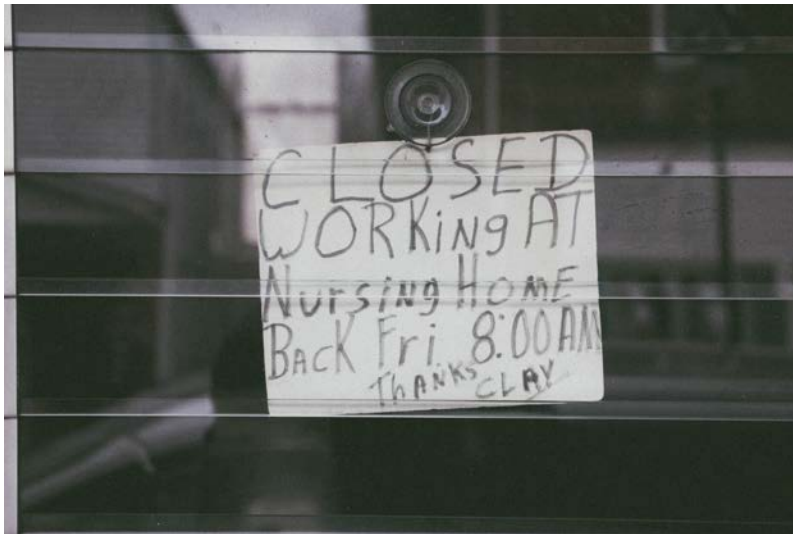 CLOSED
WORKiNg AT
NursiNg HOME
BACK Fri 8:00 AM
ThANKS CLAY